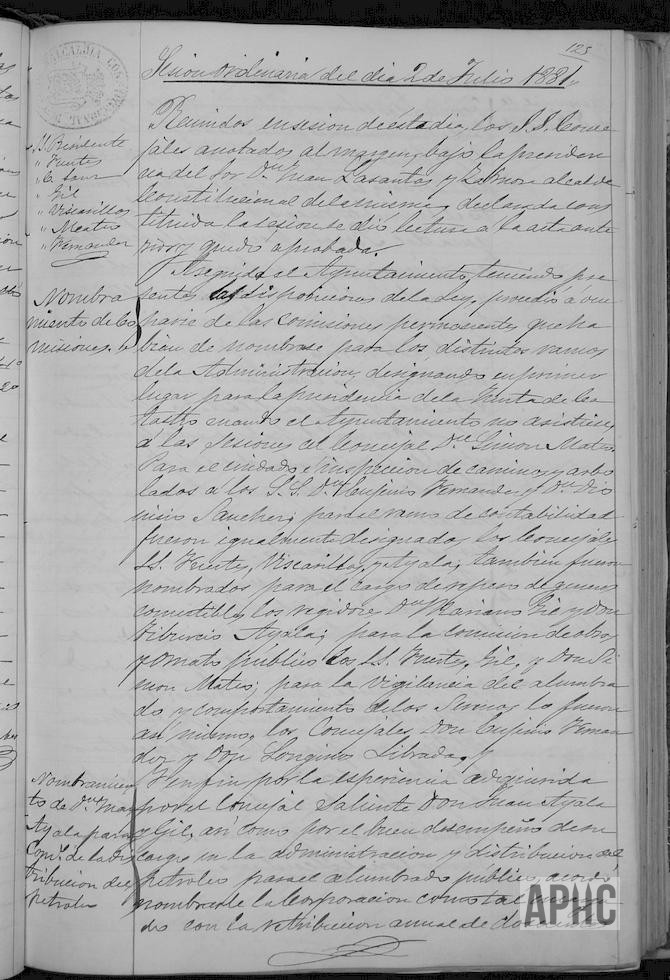 125
Sesion ordinaria del dia 2 de Julio 1881.
S. Presidente
" Fuertes
" Gil
" Viscasillas
" Mateo
" Fernandez
Reunidos en sesion de este dia, los S.S. Conce-
jales anotados al margen, bajo la presiden
cia del Sor Dn Juan Lasantas y alcalde
Constitucional de la misma, declarada cons
tituida la sesion se dió lectura a la acta ante
rior y quedó aprobada.
Nombra
miento de Co
misiones.
Aseguida el Ayuntamiento, teniendo pre
sente las disposiciones de la ley, procedió á ocu
parse de las comisiones permanentes que ha
bian de nombrarse para los distintos ramos
de la Administracion, designando en primer
lugar para la presidencia de la Junta de Ca
tastro cuando el Ayuntamiento no asistiese
a las Sesiones al Concejal Dn Simon Mateo
Para el cuidado é inspeccion de caminos y arbo
lados á los S.S. Dn Eufinio Fernandez y Dn Dio
nisio Sanchez; para el ramo de contabilidad
fueron igualmente designados los Concejales
SS. Fuertes, Viscasillas, y Ayala; tambien fueron
nombrados para el cargo de repeso de generos
comestibles los regidores Dn Mariano Gil y Don
Tiburcio Ayala; para la comision de obras
y ornato público los SS. Fuertes, Gil, y Don Si
mon Mateo; para la vigilancia del alumbra
do y comportamiento de los Serenos lo fueron
asi mismo, los Concejales, Don Eufinio Fernan
dez y Don Longinos Librada.
Nombramien
to de Dn Juan
Ayala para
Comdo. de la Dis
tribucion del
Petroleo
Y en fin por la esperiencia adquirida
por el Concejal Saliente Don Juan Ayala
y Gil, asi como por el buen desempeño de su
cargo en la administracion y distribucion del
petroleo para el alumbrado publico, acordó
nombrarle la Corporacion como tal encarga
do con la retribucion anual de
APHC